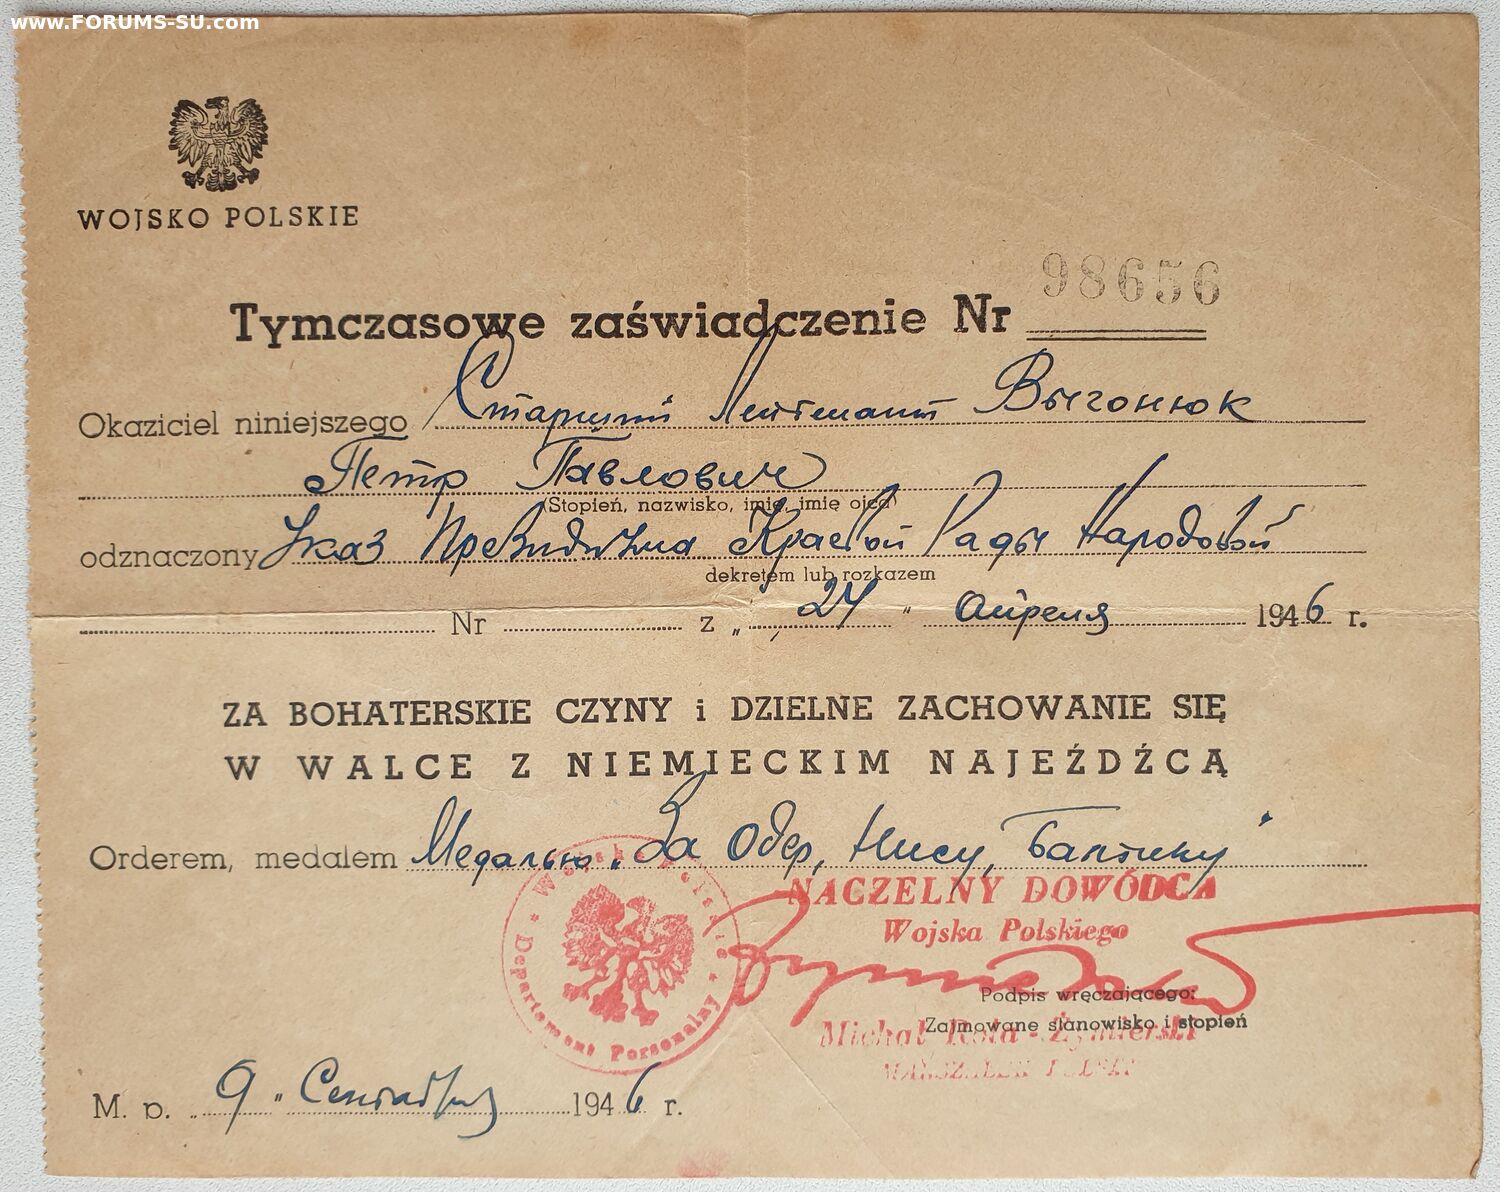 www.FORUMS-SU.com
WOJSKO POLSKIE
98656
Tymczasowe zaświadczenie Nr
Okaziciel niniejszego Старший Лейтенант Выгонюк
Петр Павлович
(Stopień, nazwisko, imię, imię ojca)
odznaczony Указ Президиума Краевой Рады Народовой
dekretem lub rozkazem
Nr z „ 24 " Апреля 1946 r.
ZA BOHATERSKIE CZYNY i DZIELNE ZACHOWANIE SIĘ
W WALCE Z NIEMIECKIM NAJEŹDŹCĄ
Orderem, medalem Медалью „За Одер, Нису, Балтику"
NACZELNY DOWÓDCA
Wojska Polskiego
Wojsko Polskie * Departament Personalny *
Podpis wręczającego:
Zajmowane stanowisko i stopień
Michał Rola-Żymierski
MARSZAŁEK POLSKI
M. p. „ 9 " Сентября 1946 r.